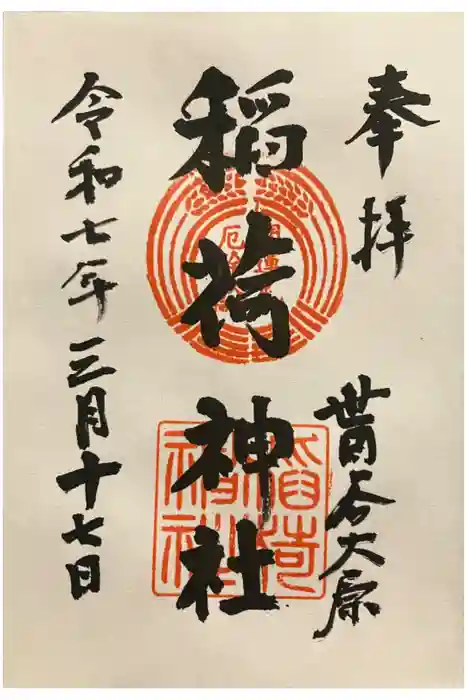 奉拝
世田谷大原
稲荷神社
令和七年三月十七日
稲荷
神社